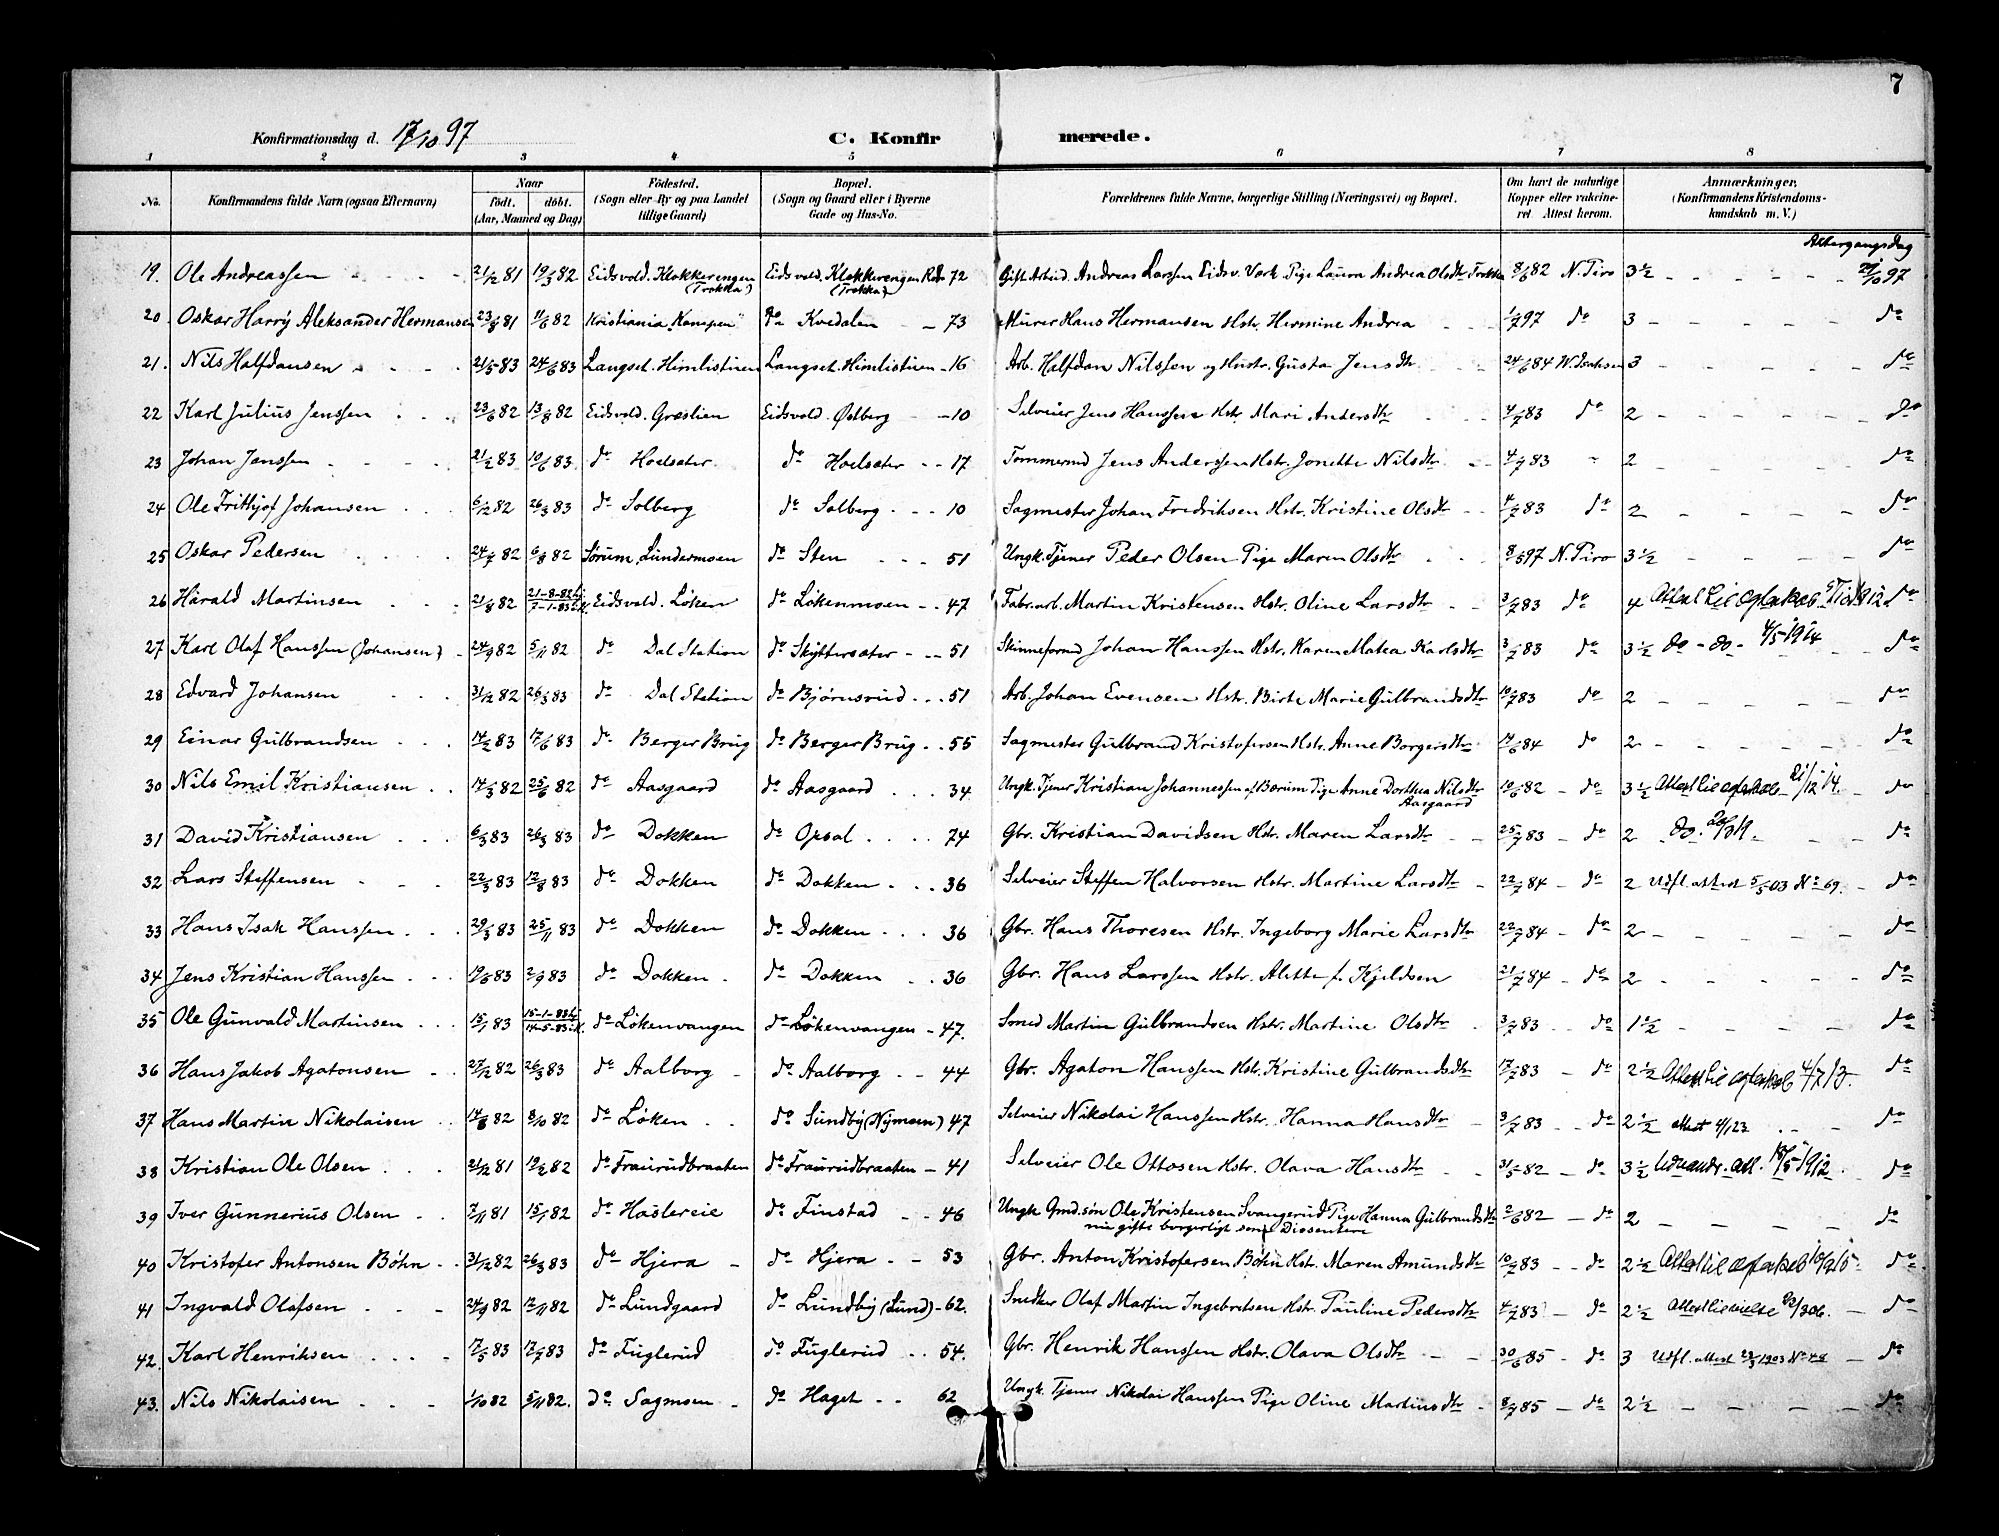 7
Konfirmationsdag d. 17/10 97 C. Konfirmerede.
1 2 3 4 5 6 7 8
No. Konfirmandens fulde Navn (ogsaa Efternavn) Naar født. døbt. (Aar, Maaned og Dag) Fødested. (Sogn eller By og paa Landet tillige Gaard) Bopæl. (Sogn og Gaard eller i Byerne Gade og Hus-No. Forældrenes fulde Navne, borgerlige Stilling (Næringsvei) og Bopæl. Om havt de naturlige Kopper eller vaccineret. Attest herom. Anmærkninger. (Konfirmandens Kristendomskundskab m. V.)
Altergangsdag
19. Ole Andreassen 21/12 81 19/3 82 Eidsvold. Klokkerengen (Trokka) Eidsvold. Klokkerengen (Trokka) 72 Gift Arbeid. Andreas Larssen Eidsv. Værk Pige Laura Andrea Olsdtr Trokka 8/6 82 N. Piro 3 1/2 24/10 97
20. Oskar Harry Aleksander Hermansen 23/8 81 11/6 82 Kristiania "Kampen" do Kvedalen 73 Murer Hans Hermansen Hstr. Hermine Andrea 1/7 97 do 3 do
21. Nils Halfdansen 21/5 83 24/6 83 Langset. Himlistuen Langset. Himlistuen 16 Arb. Halfdan Nilssen og Hustr. Gusta Jensdtr. 24/6 84 W. Isachsen 3 do
22 Karl Julius Jenssen 23/6 82 13/8 82 Eidsvold. Græslien Eidsvold. Østberg 10 Selveier Jens Hanssen Hstr. Mari Andersdtr 4/7 83 do 2 do
23 Johan Jenssen 21/2 83 10/6 83 do Hoelsæter do Hoelsæter 17 Tømmermd Jens Anderssen Hstr. Jonette Nilsdtr 4/7 83 " 2 do
24 Ole Frithjof Johansen 6/12 82 26/3 83 do Solberg do Solberg 10 Sagmester Johan Fredriksen Hstr. Kristine Olsdtr 4/7 83 do 2 do
25 Oskar Pedersen 24/7 82 6/8 82 Sørum, Lundermoen do Sten 51 Ungk. Tjener Peder Olsen Pige Maren Olsdtr 8/5 97 N. Piro 3 1/2 do
26 Harald Martinsen 21/8 82 21-8-82 hj 7-1-83 i K. Eidsvold. Løken do Løkenmoen 47 Fabr.arb. Martin Kristensen Hstr. Oline Larsdtr 3/7 83 do 4 Attest til ægteskab do
27 Karl Olaf Hanssen (Johansen) 24/9 82 5/11 82 do Dal Station do Skyttersæter 51 Skinneformd Johan Hanssen Hstr. Karen Matea Karlsdtr 3/7 83 do 3 1/2 do - do - 4/5 1914 do
28 Edvard Johansen 31/12 82 26/3 83 do Dal Station do Bjørnsrud 51 Arb. Johan Evensen Hstr. Birte Marie Gulbrandsdtr 10/7 83 do 2 do
29 Einar Gulbrandsen 14/2 83 17/6 83 do Berger Brug do Berger Brug 55 Sagmester Gulbrand Kristofersen Hstr. Anne Borgersdtr 17/6 84 do 2 do
30 Nils Emil Kristiansen 14/3 82 25/6 82 do Aasgaard do Aasgaard 34 Ungk. Tjener Kristian Johannessen f. Bærum Pige Anne Dorthea Nilsdtr Aasgaard 10/6 82 do 3 1/2 Attest til ægteskab 21/12 14. do
31 David Kristiansen 6/3 83 26/3 83 do Dokken do Opsal 74 Gbr. Kristian Davidsen Hstr. Maren Larsdtr 25/7 83 do 2 do. do
32 Lars Steffensen 22/5 83 12/8 83 do Dokken do Dokken 36 Selveier Steffen Halvorsen Hstr. Martine Larsdtr 22/7 84 do 2 Udfl. attest 5/5 03 No 69. do
33 Hans Isak Hanssen 29/3 83 25/11 83 do Dokken do Dokken 36 Gbr. Hans Thoresen Hstr. Ingeborg Marie Larsdtr 22/7 84 do 2 do
34 Jens Kristian Hanssen 19/6 83 2/9 83 do Dokken do Dokken 36 Gbr. Hans Larssen Hstr. Alette f. Kjeldsen 21/7 84 do 2 do
35 Ole Gunvald Martinsen 15/1 83 15-1-83 hj 14-5-83 i K. do Løkenvangen do Løkenvangen 47. Smed Martin Gulbrandsen Hstr. Martine Olsdtr 3/7 83 do 1 1/2 do
36 Hans Jakob Agatonsen 27/12 82 26/3 83 do Aalborg do Aalborg 44 Gbr. Agaton Hanssen Hstr. Kristine Gulbrandsdtr 17/7 83 do 2 1/2 Attest til ægteskab 4/7 13. do
37 Hans Martin Nikolaisen 14/8 82 8/10 82 do Løken do Sundby (Nymoen) 47 Selveier Nikolai Hanssen Hstr. Hanna Hansdtr 3/7 83 do 2 1/2 attest 4/1 23 do
38 Kristian Ole Olsen 21/12 81 19/2 82 do Fraurudbraaten do Fraurudbraaten 41 Selveier Ole Ottosen Hstr. Olava Hansdtr 31/5 82 do 3 1/2 Udvandr. att. 18/5 1912 do
39 Iver Gunnerius Olsen 7/11 81 15/1 82 do Haslereie do Finstad 46 Ungk. Gmd.søn Ole Kristensen Svangerud Pige Hanna Gulbrandsdtr nu gifte borgerligt som Dissentere 2/6 82 do 2 do
40 Kristofer Antonsen Bøhn 31/12 82 26/3 83 do Hjera do Hjera 53 Gbr. Anton Kristofersen Bøhn Hstr. Maren Amundsdtr 10/7 83 do 2 1/2 Attest til ægteskab do
41 Ingvald Olafsen 24/9 82 12/11 82 do Lundgaard do Lundby (Lund) 62. Snedker Olaf Martin Ingebretsen Hstr. Pauline Pedersdtr 4/7 83 do 2 1/2 Attest til vielse do
42. Karl Henriksen 17/5 83 17/7 83 do Fuglerud do Fuglerud 54. Gbr. Henrik Hanssen Hstr. Olava Olsdtr 30/6 85 do 3 Udfl. attest 1903 No 48 do
43. Nils Nikolaisen 1/10 82 5/11 82. do Sagmoen do Haget 62 Ungk. Tjener Nikolai Hanssen Pige Oline Martinsdtr 8/7 85 do 2 1/2 do